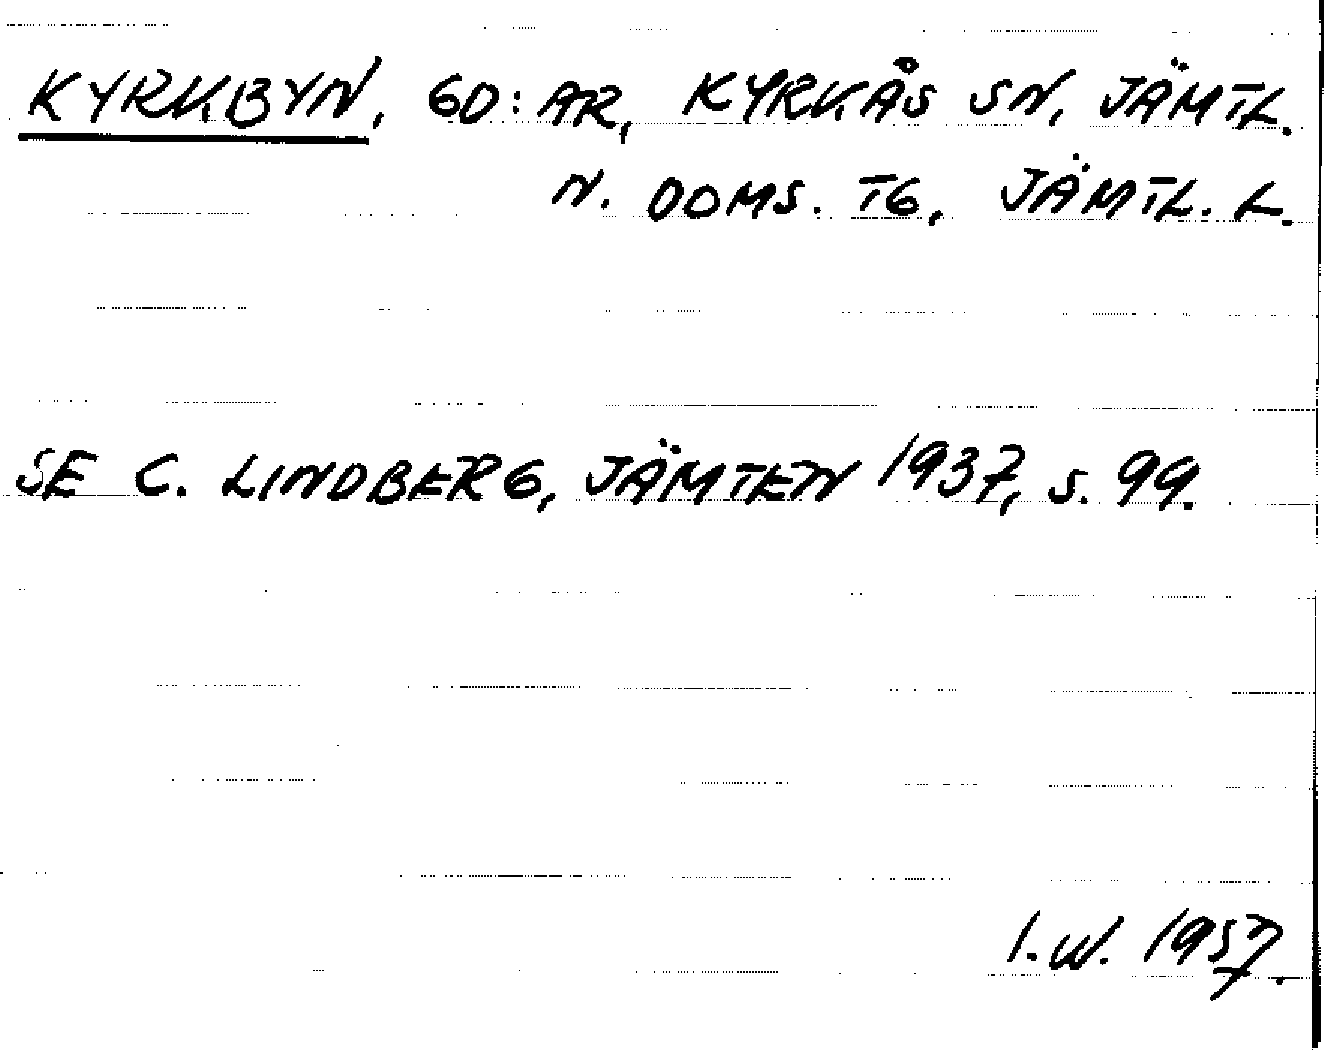 KYRKBYN, GD:AR, KYRKÅS SN, JÄMTL.
N. DOMS. TG, JÄMTL. L.
SE C. LINDBERG, JÄMTEN 1937, S. 99.
I.W. 1957.